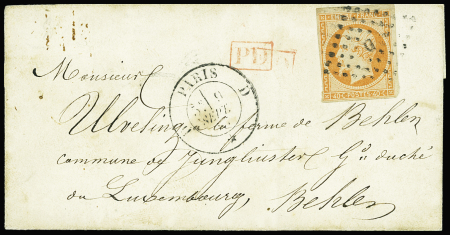 PD
PARIS D
9
SEPT
40 C POSTES 40 C
D
Monsieur
Ulveling à la ferme de Behlen
commune de Junglinster Gd duché
du Luxembourg, Behlen